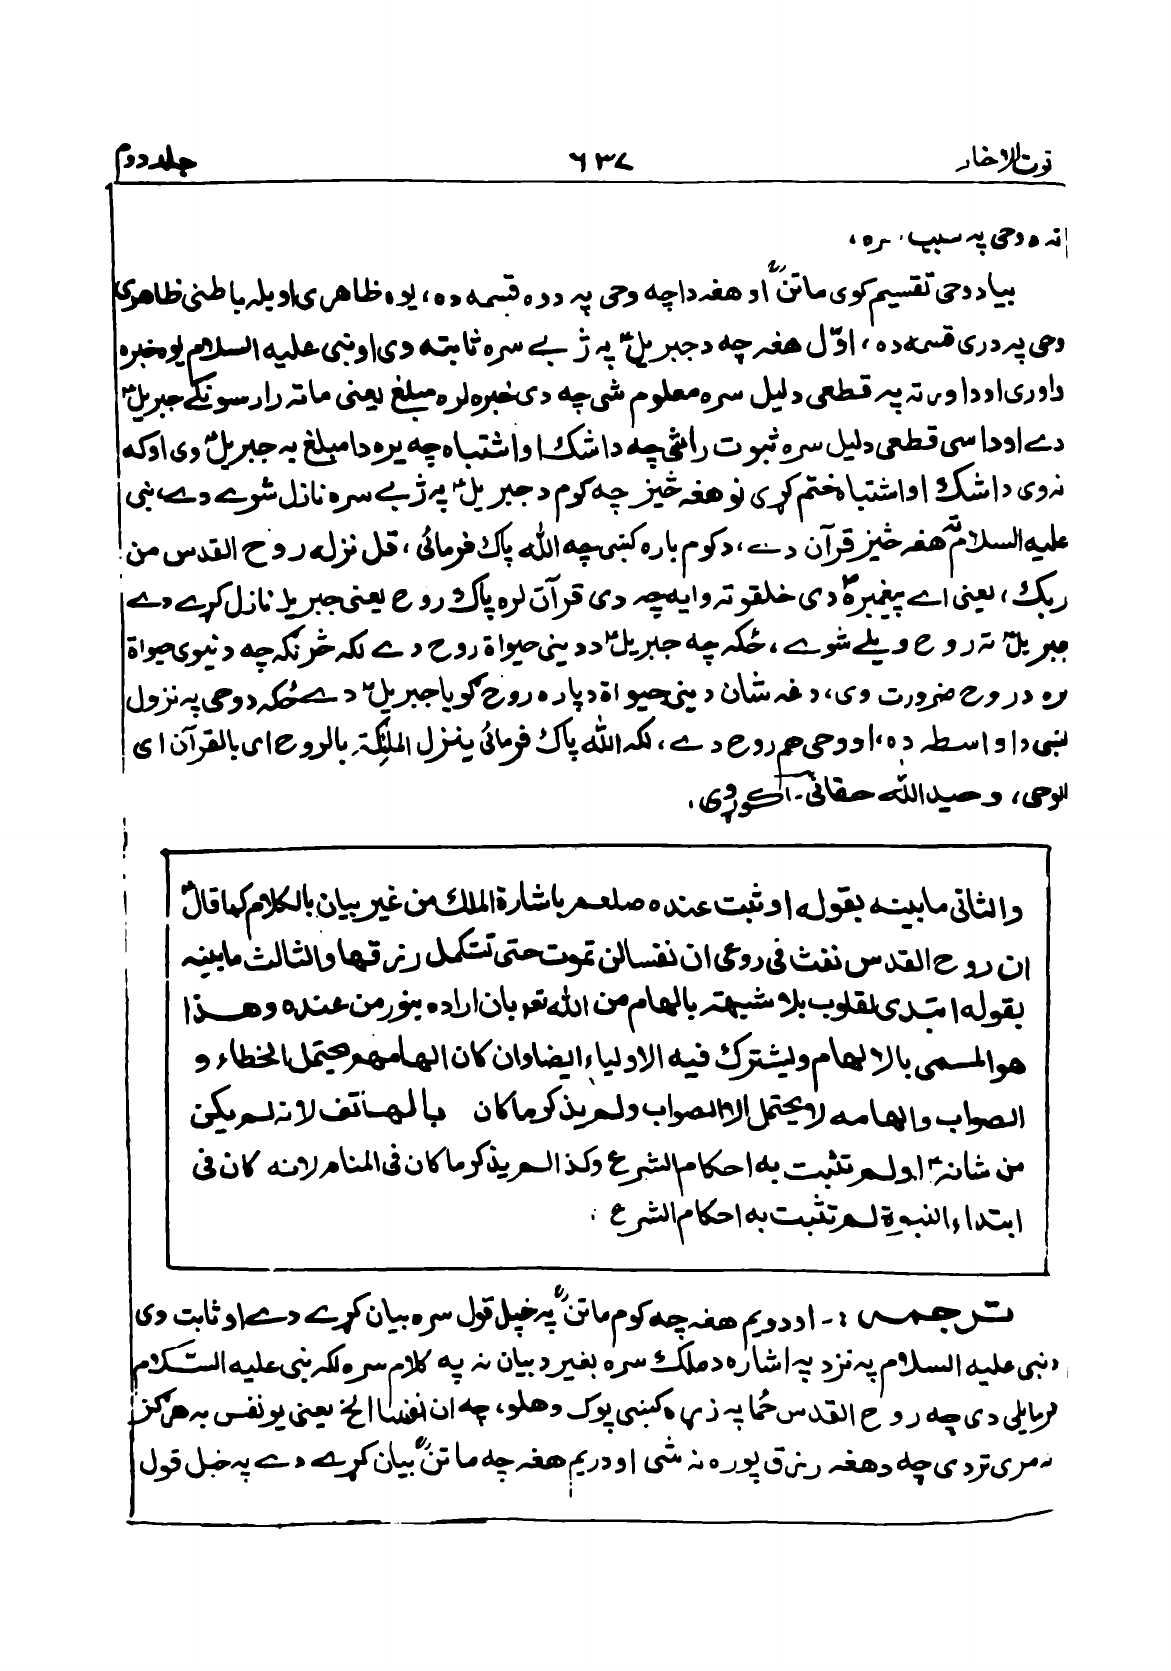 قوت الاخيار ٦٣٧ جلد دوم
نه وحی په سبب سره،
بیا د وحی تقسیم کوی ماتنؒ او هغه دا چه وحی په دوه قسمه ده، یوه ظاهری او بله باطنی ظاهری
وحی په دری قسمه ده، اوّل هغه چه د جبریلؑ په ژبے سره ثابته وی او نبی علیه السلام یوه خبره
داوری او داو ته په قطعی دلیل سره معلوم شی چه دی خبره لره مبلغ یعنی ما ته رارسونکے جبریلؑ
دے او داسی قطعی دلیل سره ثبوت راشی چه دا شک او اشتباه چه یره دا مبلغ به جبریلؑ وی او که
نه وی دا شک او اشتباه ختم کړی نو هغه څیز چه کوم د جبریلؑ په ژبے سره نازل شوے دے، نبی
علیه السلام ته هغه څیز قرآن دے، د کوم باره کښی چه الله پاک فرمائی، قل نزله روح القدس من
ربک، یعنی اے پیغمبره دی خلقو ته وایه چه دی قرآن لره پاک روح یعنی جبریل نازل کړے دے
جبریلؑ ته روح ویلے شوے، ځکه چه جبریلؑ د دینی حیواة روح دے لکه څرنگه چه دنیوی حیواة
ره د روح ضرورت وی، دغه شان دینی حیواة دپاره روح گویا جبریلؑ دے ځکه د وحی په نزول
نبی دا واسطه ده، او وحی هم روح دے، لکه الله پاک فرمائی ینزل الملٰئکة بالروح ای بالقرآن ای
الوحی، وحید الله حقانی ـ اکوړوی.
والثانی ما بینه بقوله او ثبت عنده صلعم باشارة الملک من غیر بیان بالکلام کما قالؑ
ان روح القدس نفث فی روعی ان نفسا لن تموت حتی تستکمل رزقها والثالث ما بینه
بقوله او تبدی لقلوب بلا شبهة بالهام من الله تعه بان اراده بنور من عنده وهذا
هو المسمی بالالهام ویشترک فیه الاولیاء ایضا وان کان الهامهم یحتمل الخطاء و
الصواب والهامه لا یحتمل الا الصواب ولم یذکر ما کان بالهاتف لانه لم یکن
من شانهؑ او لم تثبت به احکام الشرع وکذا لم یذکر ما کان فی المنام لانه کان فی
ابتداء النبوة لم تثبت به احکام الشرع.
ترجمه:ـ او دویم هغه چه کوم ماتنؒ په خپل قول سره بیان کړے دے او ثابت وی
د نبی علیه السلام په نزد په اشاره د ملک سره بغیر د بیان نه په کلام سره لکه نبی علیه السّلام
فرمایلی دی چه روح القدس ځما په زړه کښی پوک وهلو، چه ان نفسا الخ یعنی یو نفس به هرگز
نه مری تر دی چه د هغه رزق پوره نه شی او دریم هغه چه ماتنؒ بیان کړے دے په خپل قول